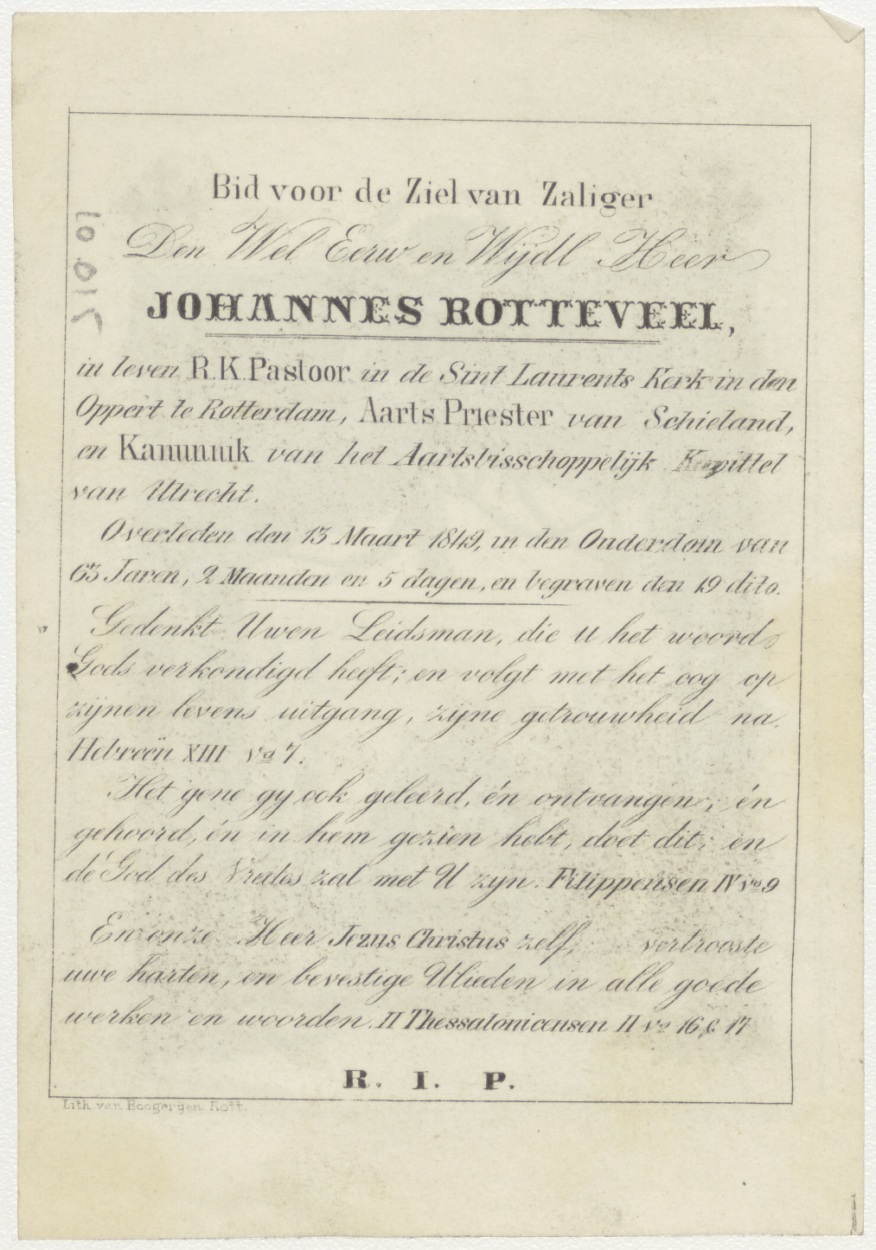 Bid voor de Ziel van Zaliger
Den Wel Eerw en Wijdl Heer
JOHANNES ROTTEVEEL,
in leven R.K. Pastoor in de Sint Laurents Kerk in den
Oppert te Rotterdam, Aarts Priester van Schieland,
en Kanunnik van het Aartsbisschoppelijk Kapittel
van Utrecht.
Overleden den 13 Maart 1849, in den Ouderdom van
63 Jaren, 2 Maanden en 5 dagen, en begraven den 19 dito.
Gedenkt Uwen Leidsman, die u het woord
Gods verkondigd heeft; en volgt met het oog op
zijnen levens uitgang, zijne getrouwheid na.
Hebreën XIII vs 7.
Het gene gy ook geleerd, én ontvangen, én
gehoord, én in hem gezien hebt, doet dit; en
dé God des Vredes zal met U zyn. Filippensen IV vs 9
En onze Heer Jezus Christus zelf, vertrooste
uwe harten, en bevestige Ulieden in alle goede
werken en woorden. II Thessalonicensen II vs 16 & 17
R. I. P.
Lith. van Boogerijen Rott.
10.015